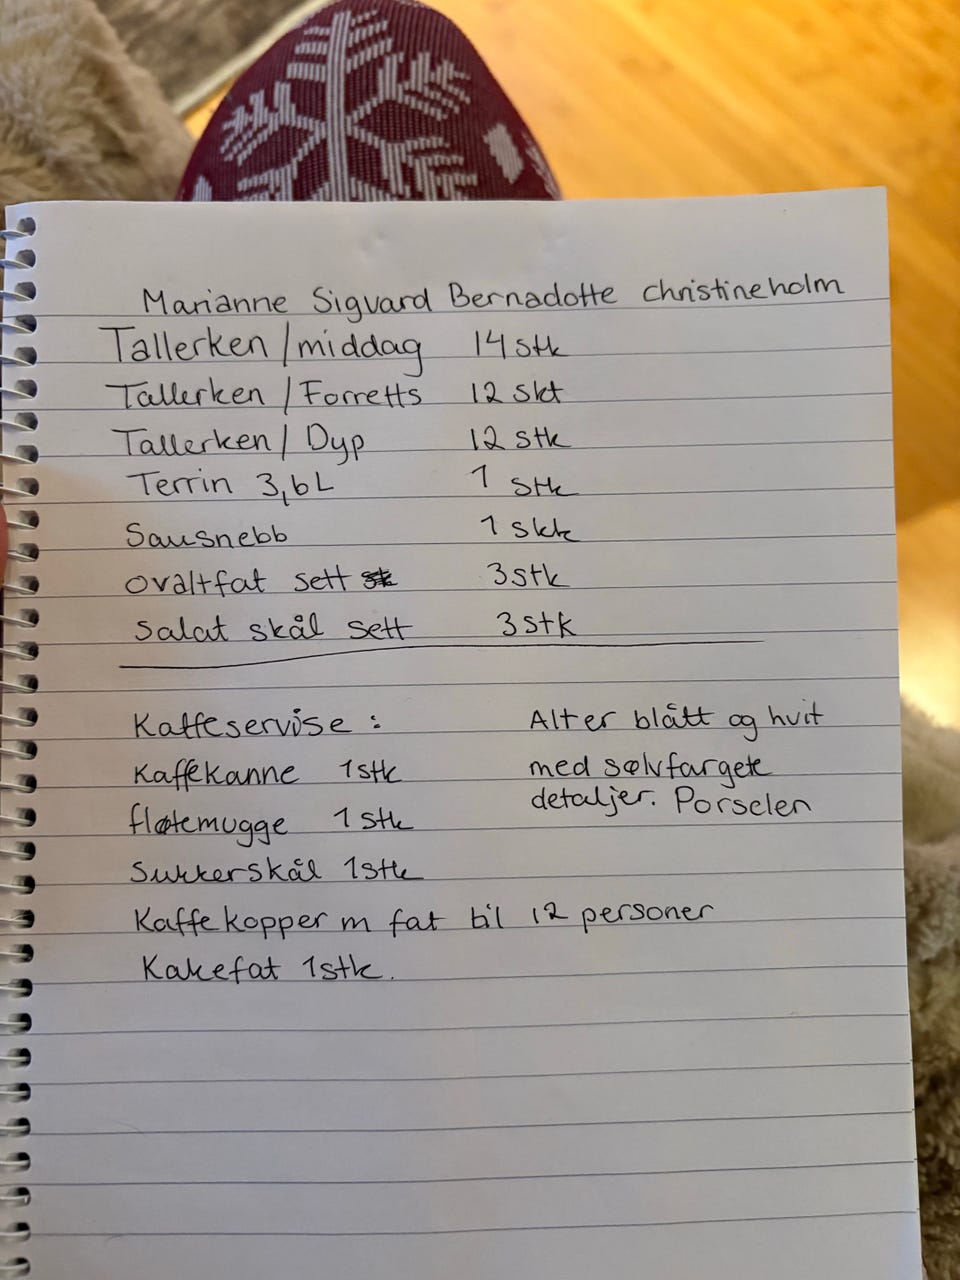 Marianne Sigvard Bernadotte christineholm
Tallerken/middag 14 stk
Tallerken/Forretts 12 skt
Tallerken/Dyp 12 stk
Terrin 3,6L 1 stk
Sausnebb 1 skk
ovaltfat sett 3 stk
salat skål sett 3 stk
Kaffeservise :
Kaffekanne 1 stk
fløtemugge 1 stk
Sukkerskål 1 stk
Kaffekopper m fat til 12 personer
Kakefat 1 stk.
Alter blått og hvit
med sølvfargete
detaljer. Porselen